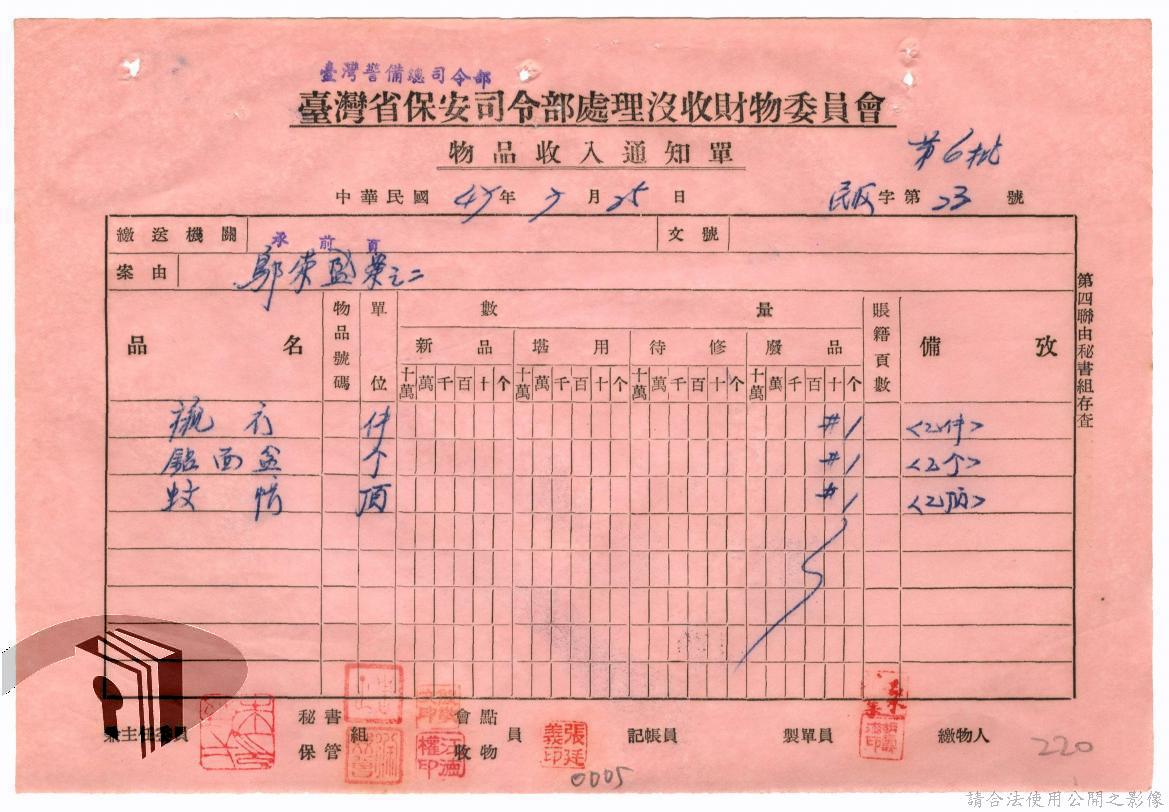 臺灣警備總司令部
臺灣省保安司令部處理沒收財物委員會
物品收入通知單
第6批
中華民國 47年 月 25日
字第 23 號
繳送機關
文號
承前頁
案由 鄔榮盛案之二
品名 物品號碼 單位 數量 賬籍頁數 備攷
新品 堪用 待修 廢品
十萬 萬 千 百 十 个 十萬 萬 千 百 十 个 十萬 萬 千 百 十 个 十萬 萬 千 百 十 个
襯衣 件 #1 <乙件>
鋁面盆 个 #1 <乙个>
蚊帳 頂 #1 <乙頂>
第四聯由秘書組存査
兼主任委員 秘書保管組 會點收物員 記帳員 製單員 繳物人
張廷義印
220
0005
請合法使用公開之影像